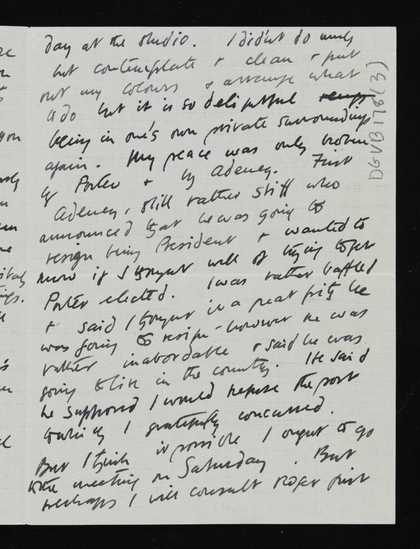 day at the studio. I didn't do much
but contemplate & clean & put
out my colours & arrange what
to do but it is so delightful
being in one's own private surroundings
again. My peace was only broken
by Porter & by Adeney. First
Adeney, still rather stiff who
announced that he was going to
resign being President & wanted to
know if I thought well of trying to get
Porter elected. I was rather baffled
& said I thought it a great pity he
was going to resign - however he was
rather & said he was
going to live in the country. He said
he supposed I would refuse the post
which I gratefully concurred.
But I think if possible I ought to go
to the meeting on Saturday. But
perhaps I will consult Roger first
DGVB 178 (3)